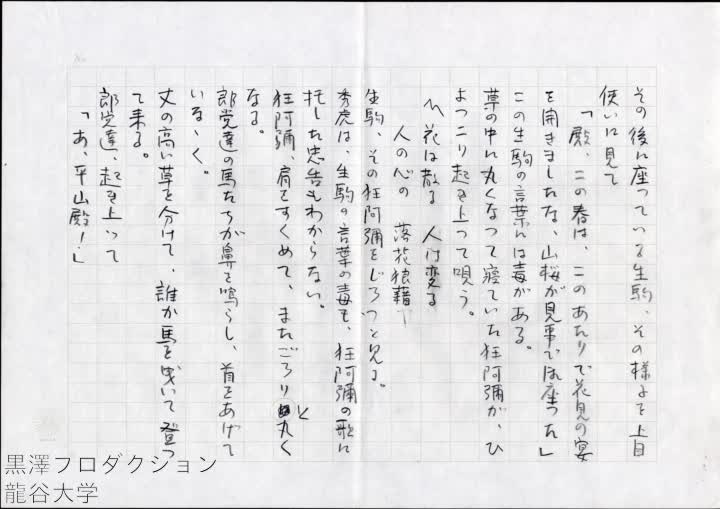 その後に座っている生駒、その様子を上目
使いに見て
「殿、この春は、このあたりで花見の宴
を開きましたな、山桜が見事で御座った」
この生駒の言葉には毒がある。
草の中に丸くなって寝ていた狂阿彌が、ひ
よっこり起き上って唄う。
〽花は散る 人は変る
人の心の 落花狼藉⊤
生駒、その狂阿彌をじろっと見る。
秀虎は、生駒の言葉の毒も、狂阿彌の歌に
托した忠告もわからない。
狂阿彌、肩をすくめて、またごろりと丸く
なる。
郎党達の馬たちが鼻を鳴らし、首をあげて
いなゝく。
丈の高い草を分けて、誰か馬を曳いて登っ
て来る。
郎党達、起き上って
「あ、平山殿！」
黒澤プロダクション
龍谷大学